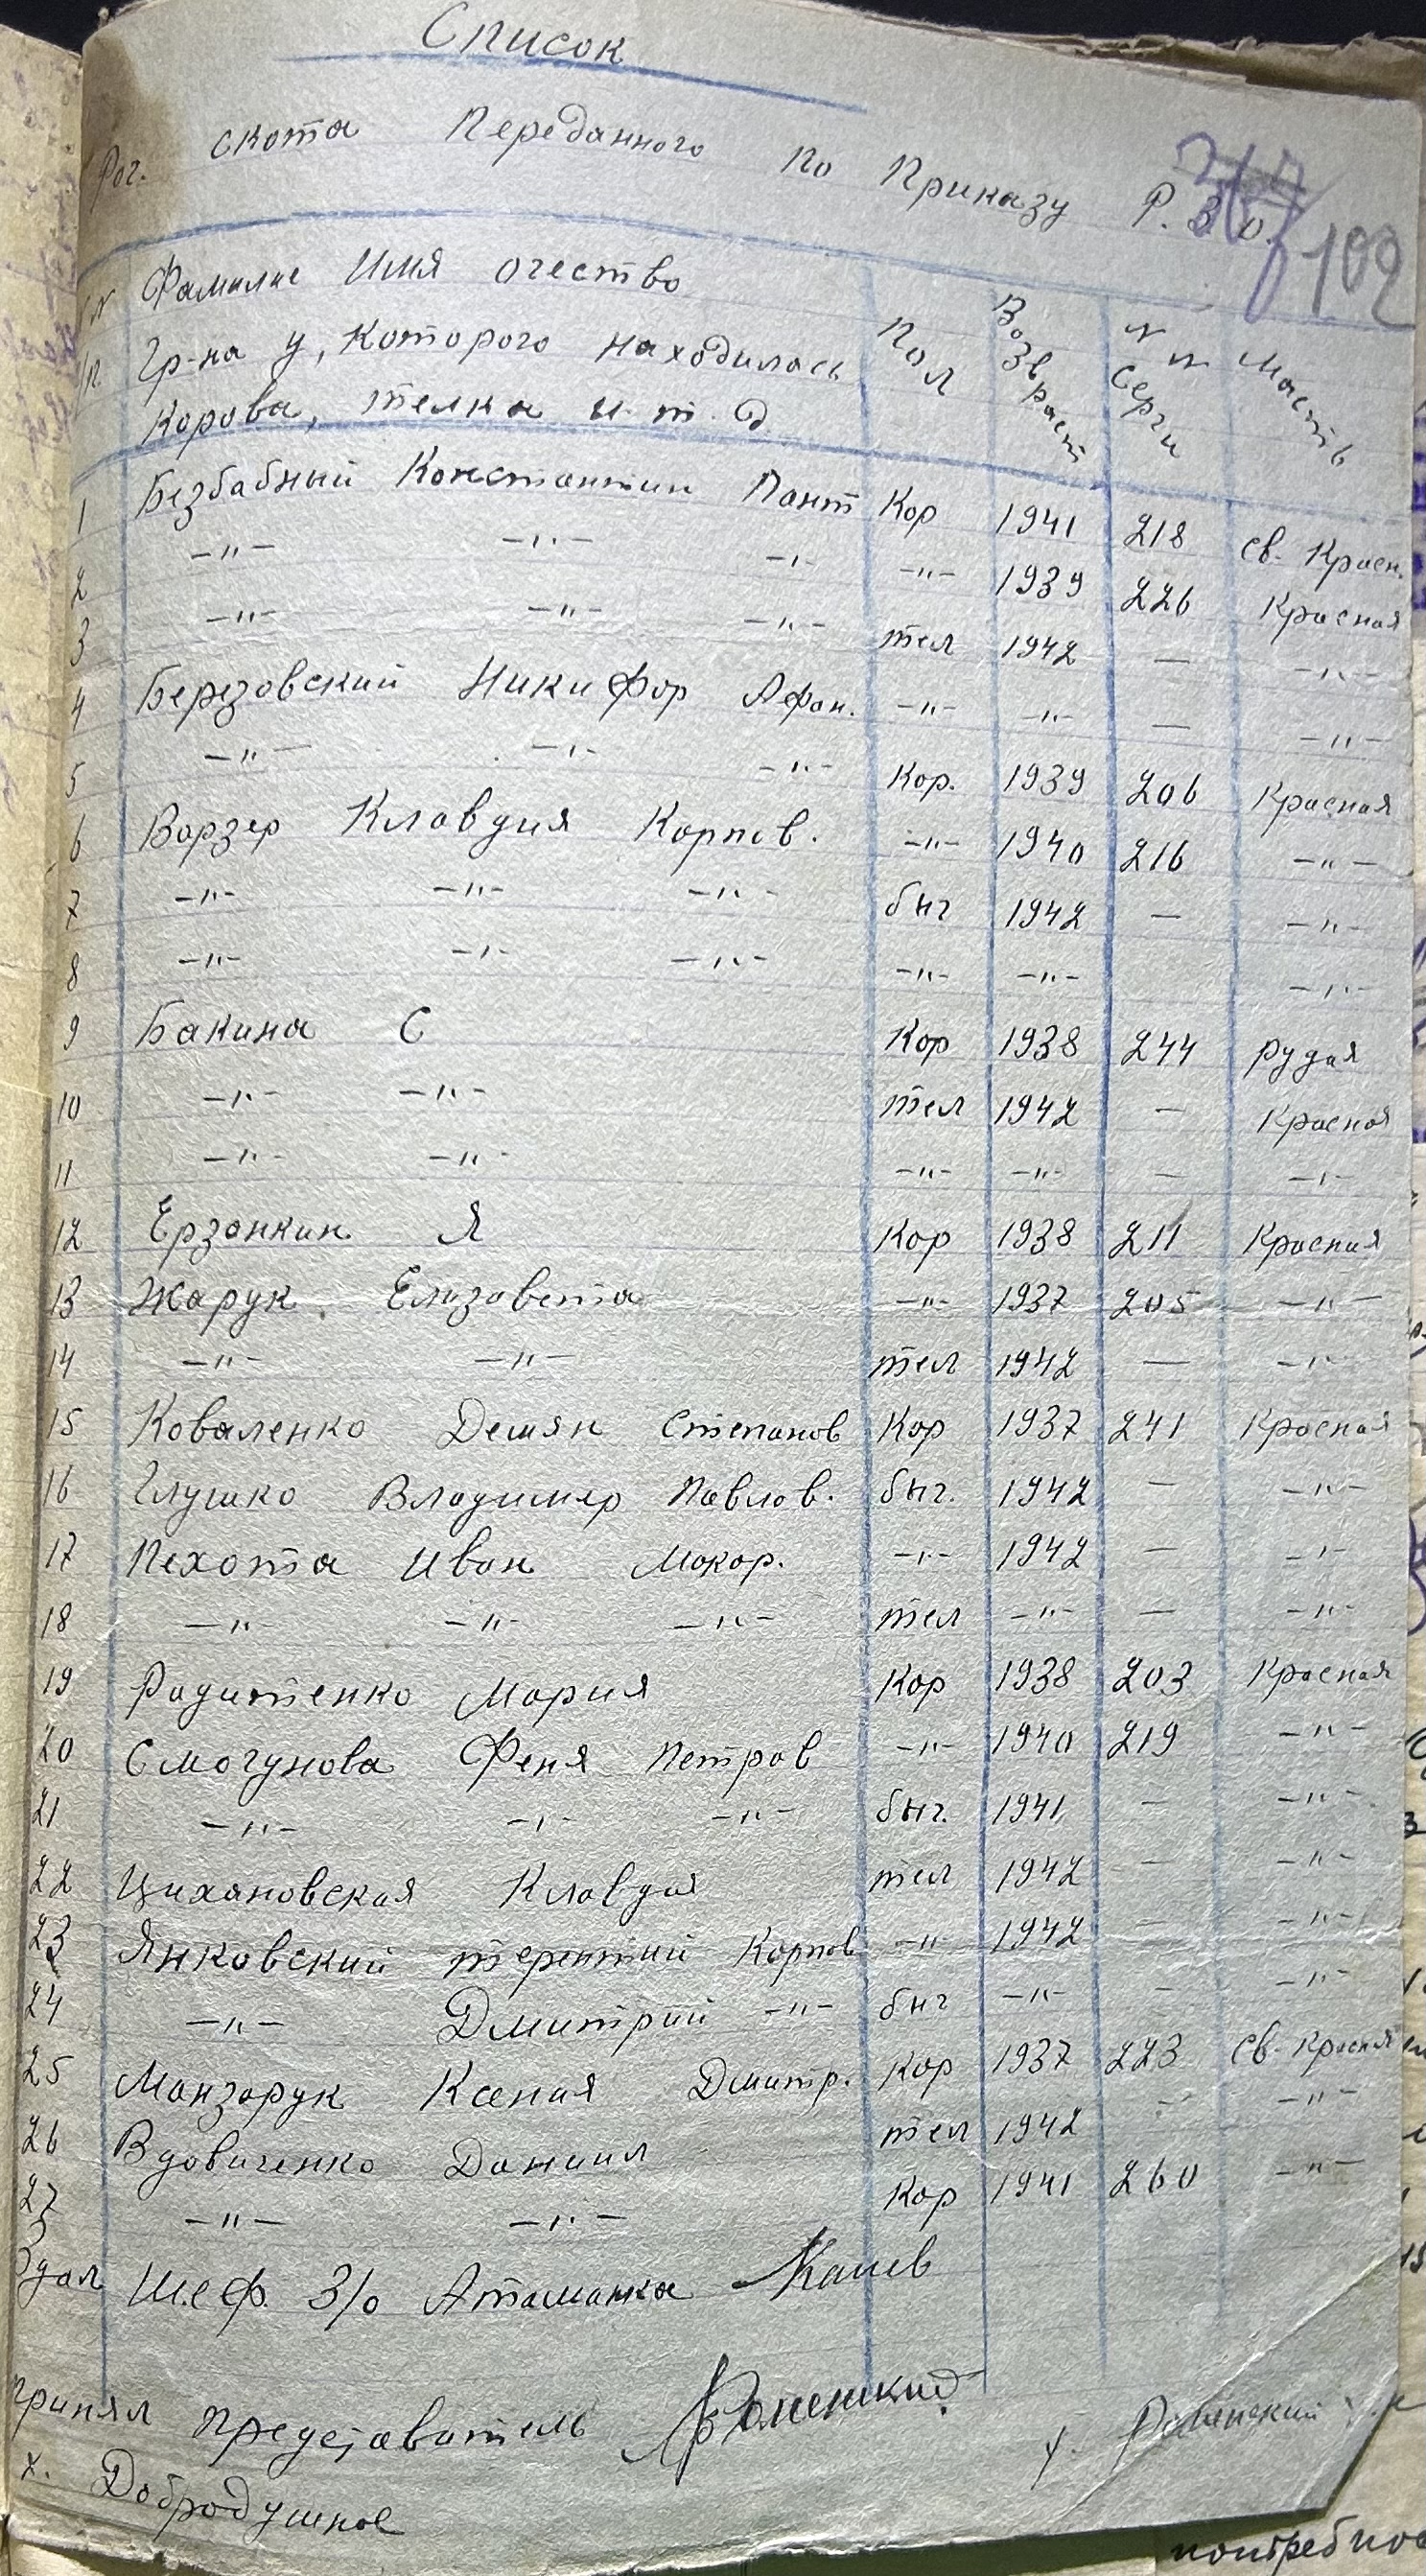 Список
Рог. скота Переданного по Приказу Р.З.о.
102
N п/п. Фамилие Имя очество Гр-на у, которого находилась Корова, телка и.т.д. Пол Возвраст N N серги Масть
1 Безбабный Константин Пант Кор 1941 218 св- Красн.
2 -"- -"- -"- -"- 1939 226 Красная
3 -"- -"- -"- тел 1942 — -"-
4 Березовский Никифор Афан. -"- -"- — -"-
5 -"- -"- -"- Кор. 1939 206 Красная
6 Варзер Клавдия Карпов. -"- 1940 216 -"-
7 -"- -"- -"- быч 1942 — -"-
8 -"- -"- -"- -"- -"- -"-
9 Бакина С Кор 1938 244 рудая
10 -"- -"- тел 1942 — Красная
11 -"- -"- -"- -"- — -"-
12 Ерзанкин Я Кор 1938 211 Красная
13 Жарук Елизавета -"- 1937 205 -"-
14 -"- -"- тел 1942 — -"-
15 Коваленко Демян Степанов Кор 1937 241 Красная
16 Глушко Владимер Павлов. быч. 1942 — -"-
17 Пехота Иван Макар. -"- 1942 — -"-
18 -"- -"- -"- тел -"- — -"-
19 Радитенко Мария Кор 1938 203 Красная
20 Смогунова Феня Петров -"- 1940 219 -"-
21 -"- -"- -"- быч. 1941 — -"-
22 Цихановская Клавдия тел 1942 — -"-
23 Янковский терентий Карпов -"- 1942 — -"-
24 -"- Дмитрий -"- быч -"- — -"-
25 Манзарук Ксения Дмитр. Кор 1937 223 Св- красная
26 Вдовиченко Даниил тел 1942 — -"-
27 -"- -"- Кор 1941 260 -"-
Здал Шеф. З/о Атаманка
Принял Представитель
х. Добродушное
потребно